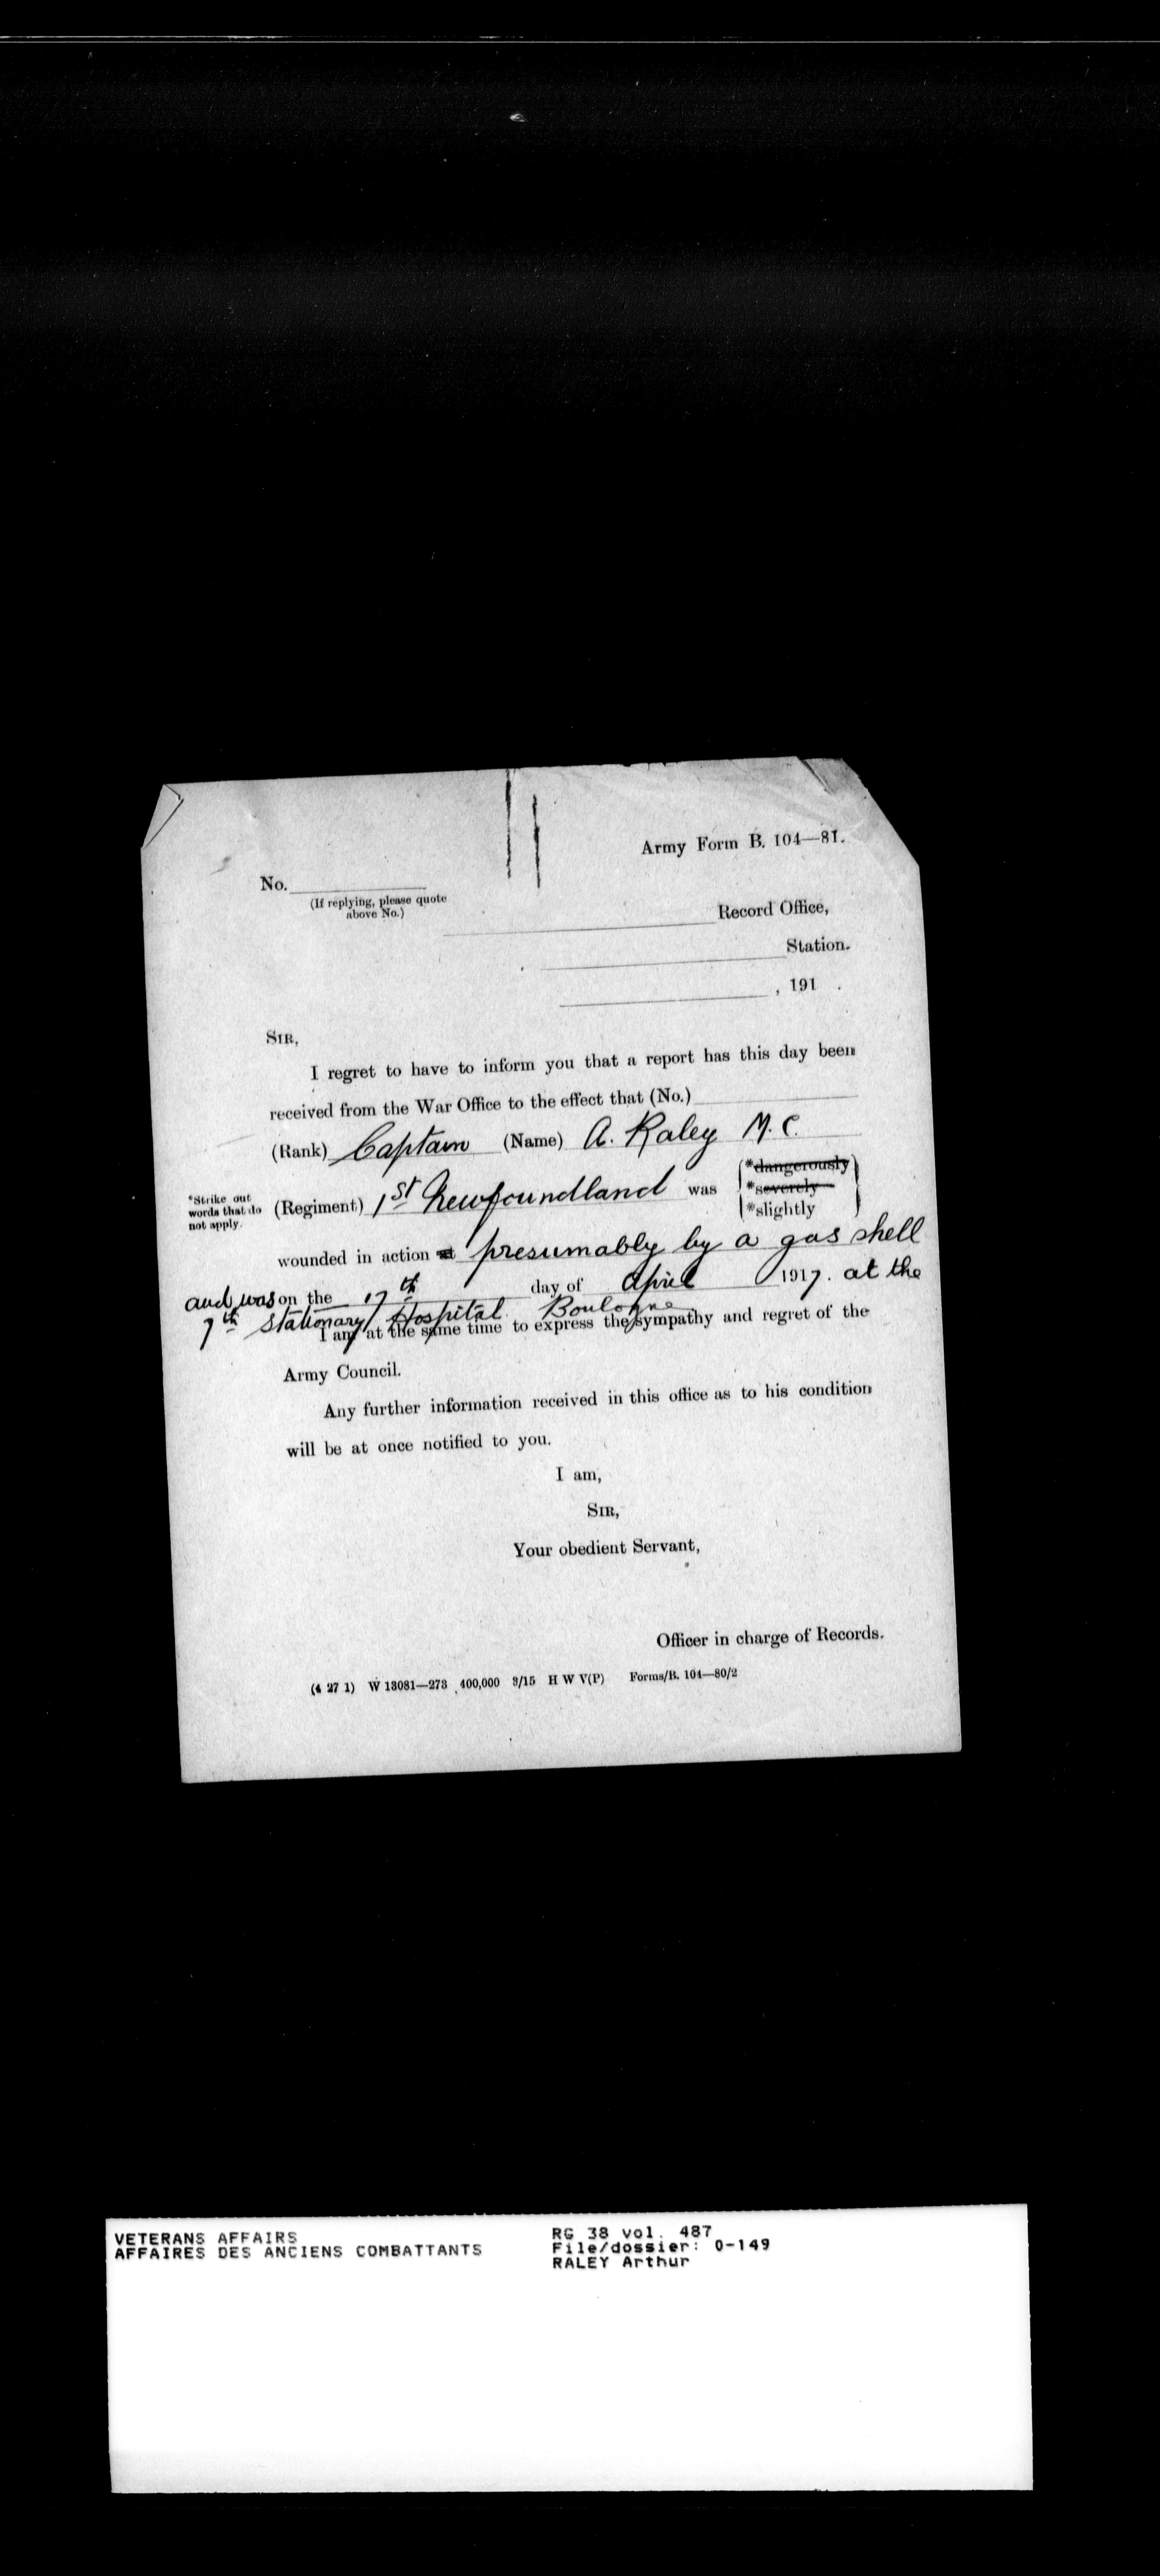 Army Form B. 104—81.
No.
(If replying, please quote
above No.)
Record Office,
Station.
, 191 .
SIR,
I regret to have to inform you that a report has this day been
received from the War Office to the effect that (No.)
(Rank) Captain (Name) A. Raley M.C.
*Strike out
words that do
not apply.
(Regiment) 1st Newfoundland was
*dangerously
*severely
*slightly
wounded in action at presumably by a gas shell
and was on the 17th day of April 1917. at the
7th Stationary Hospital Boulogne
I am at the same time to express the sympathy and regret of the
Army Council.
Any further information received in this office as to his condition
will be at once notified to you.
I am,
SIR,
Your obedient Servant,
Officer in charge of Records.
(4 27 1) W 13081—273 400,000 3/15 H W V(P) Forms/B. 104—80/2
VETERANS AFFAIRS
AFFAIRES DES ANCIENS COMBATTANTS
RG 38 vol. 487
File/dossier: 0-149
RALEY Arthur